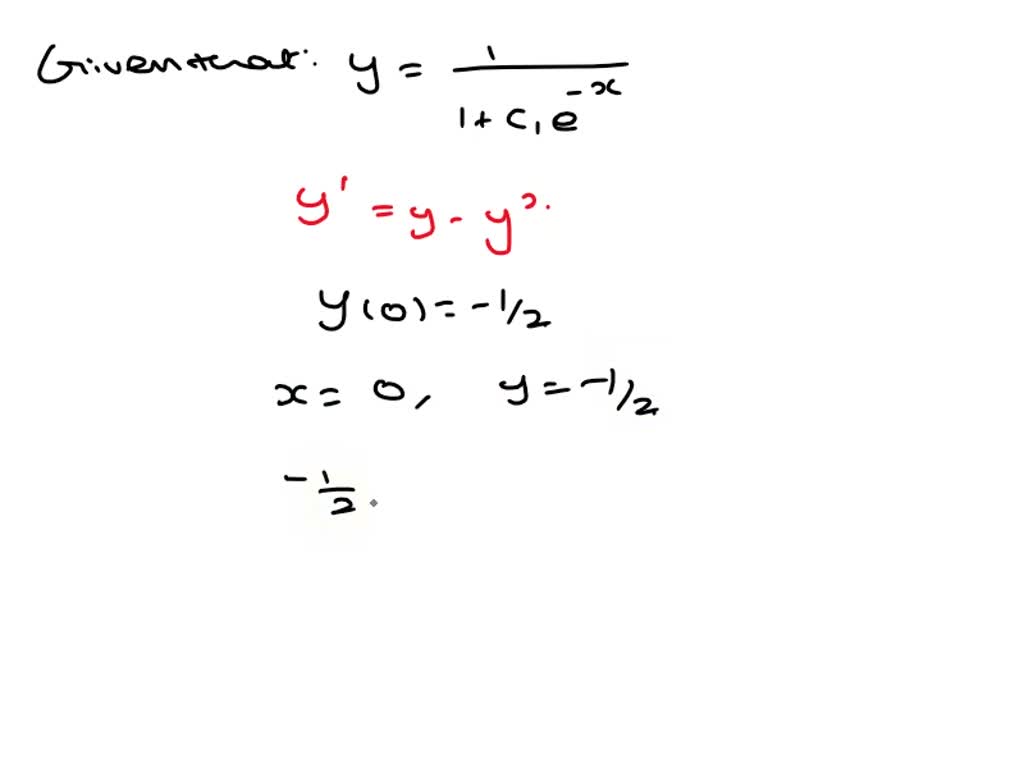 Given that: y = 1 / (1 + C₁e⁻ˣ)
y' = y - y².
y(0) = -1/2
x = 0, y = -1/2
- 1/2